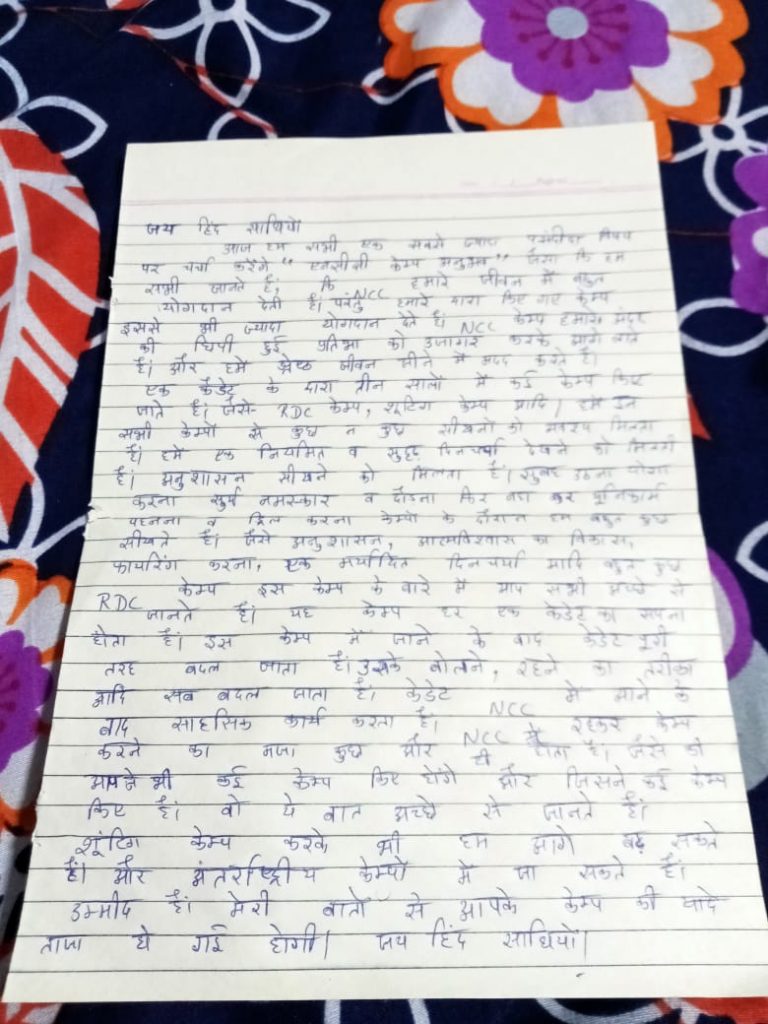 जय हिंद साथियों
आज हम सभी एक सबसे ज्यादा पसंदीदा विषय
पर चर्चा करेंगे "एनसीसी केम्प अनुभव" जैसा कि हम
सभी जानते हैं, कि NCC हमारे जीवन में बहुत
योगदान देती हैं। परंतु हमारे द्वारा किए गए केम्प
इससे भी ज्यादा योगदान देते हैं। NCC केम्प हमारे अंदर
की छिपी हुई प्रतिभा को उजागर करके आगे लाते
हैं। और हमें श्रेष्ठ जीवन जीने में मदद करते हैं।
एक कैडेट के द्वारा तीन सालों में कई केम्प किए
जाते हैं। जैसे- RDC केम्प, शूटिंग केम्प आदि। हमें इन
सभी केम्पों से कुछ न कुछ सीखने को अवश्य मिलता
हैं। हमें एक नियमित व सुदृढ़ दिनचर्या देखने को मिलती
हैं। अनुशासन सीखने को मिलता हैं। सुबह उठना योगा
करना सूर्य नमस्कार व दौड़ना फिर नहा कर यूनिफार्म
पहनना व ड्रिल करना केम्पों के दौरान हम बहुत कुछ
सीखते हैं। जैसे अनुशासन, आत्मविश्वास का विकास,
फायरिंग करना, एक मर्यादित दिनचर्या आदि बहुत कुछ
RDC केम्प इस केम्प के बारे में आप सभी अच्छे से
जानते हैं। यह केम्प हर एक केडेट का सपना
होता हैं। इस केम्प में जाने के बाद केडेट पूरी
तरह बदल जाता हैं। उसके बोलने, रहने का तरीका
आदि सब बदल जाता हैं। केडेट NCC में आने के
बाद साहसिक कार्य करता हैं। NCC में रहकर केम्प
करने का मजा कुछ और ही होता हैं। जैसे की
आपने भी कई केम्प किए होंगे और जिसने कई केम्प
किए हैं। वो ये बात अच्छे से जानते हैं।
शूटिंग केम्प करके भी हम आगे बढ़ सकते
हैं। और अंतर्राष्ट्रीय केम्पों में जा सकते हैं।
उम्मीद हैं। मेरी बातों से आपके केम्प की यादे
ताजा हो गई होगी। जय हिंद साथियों।